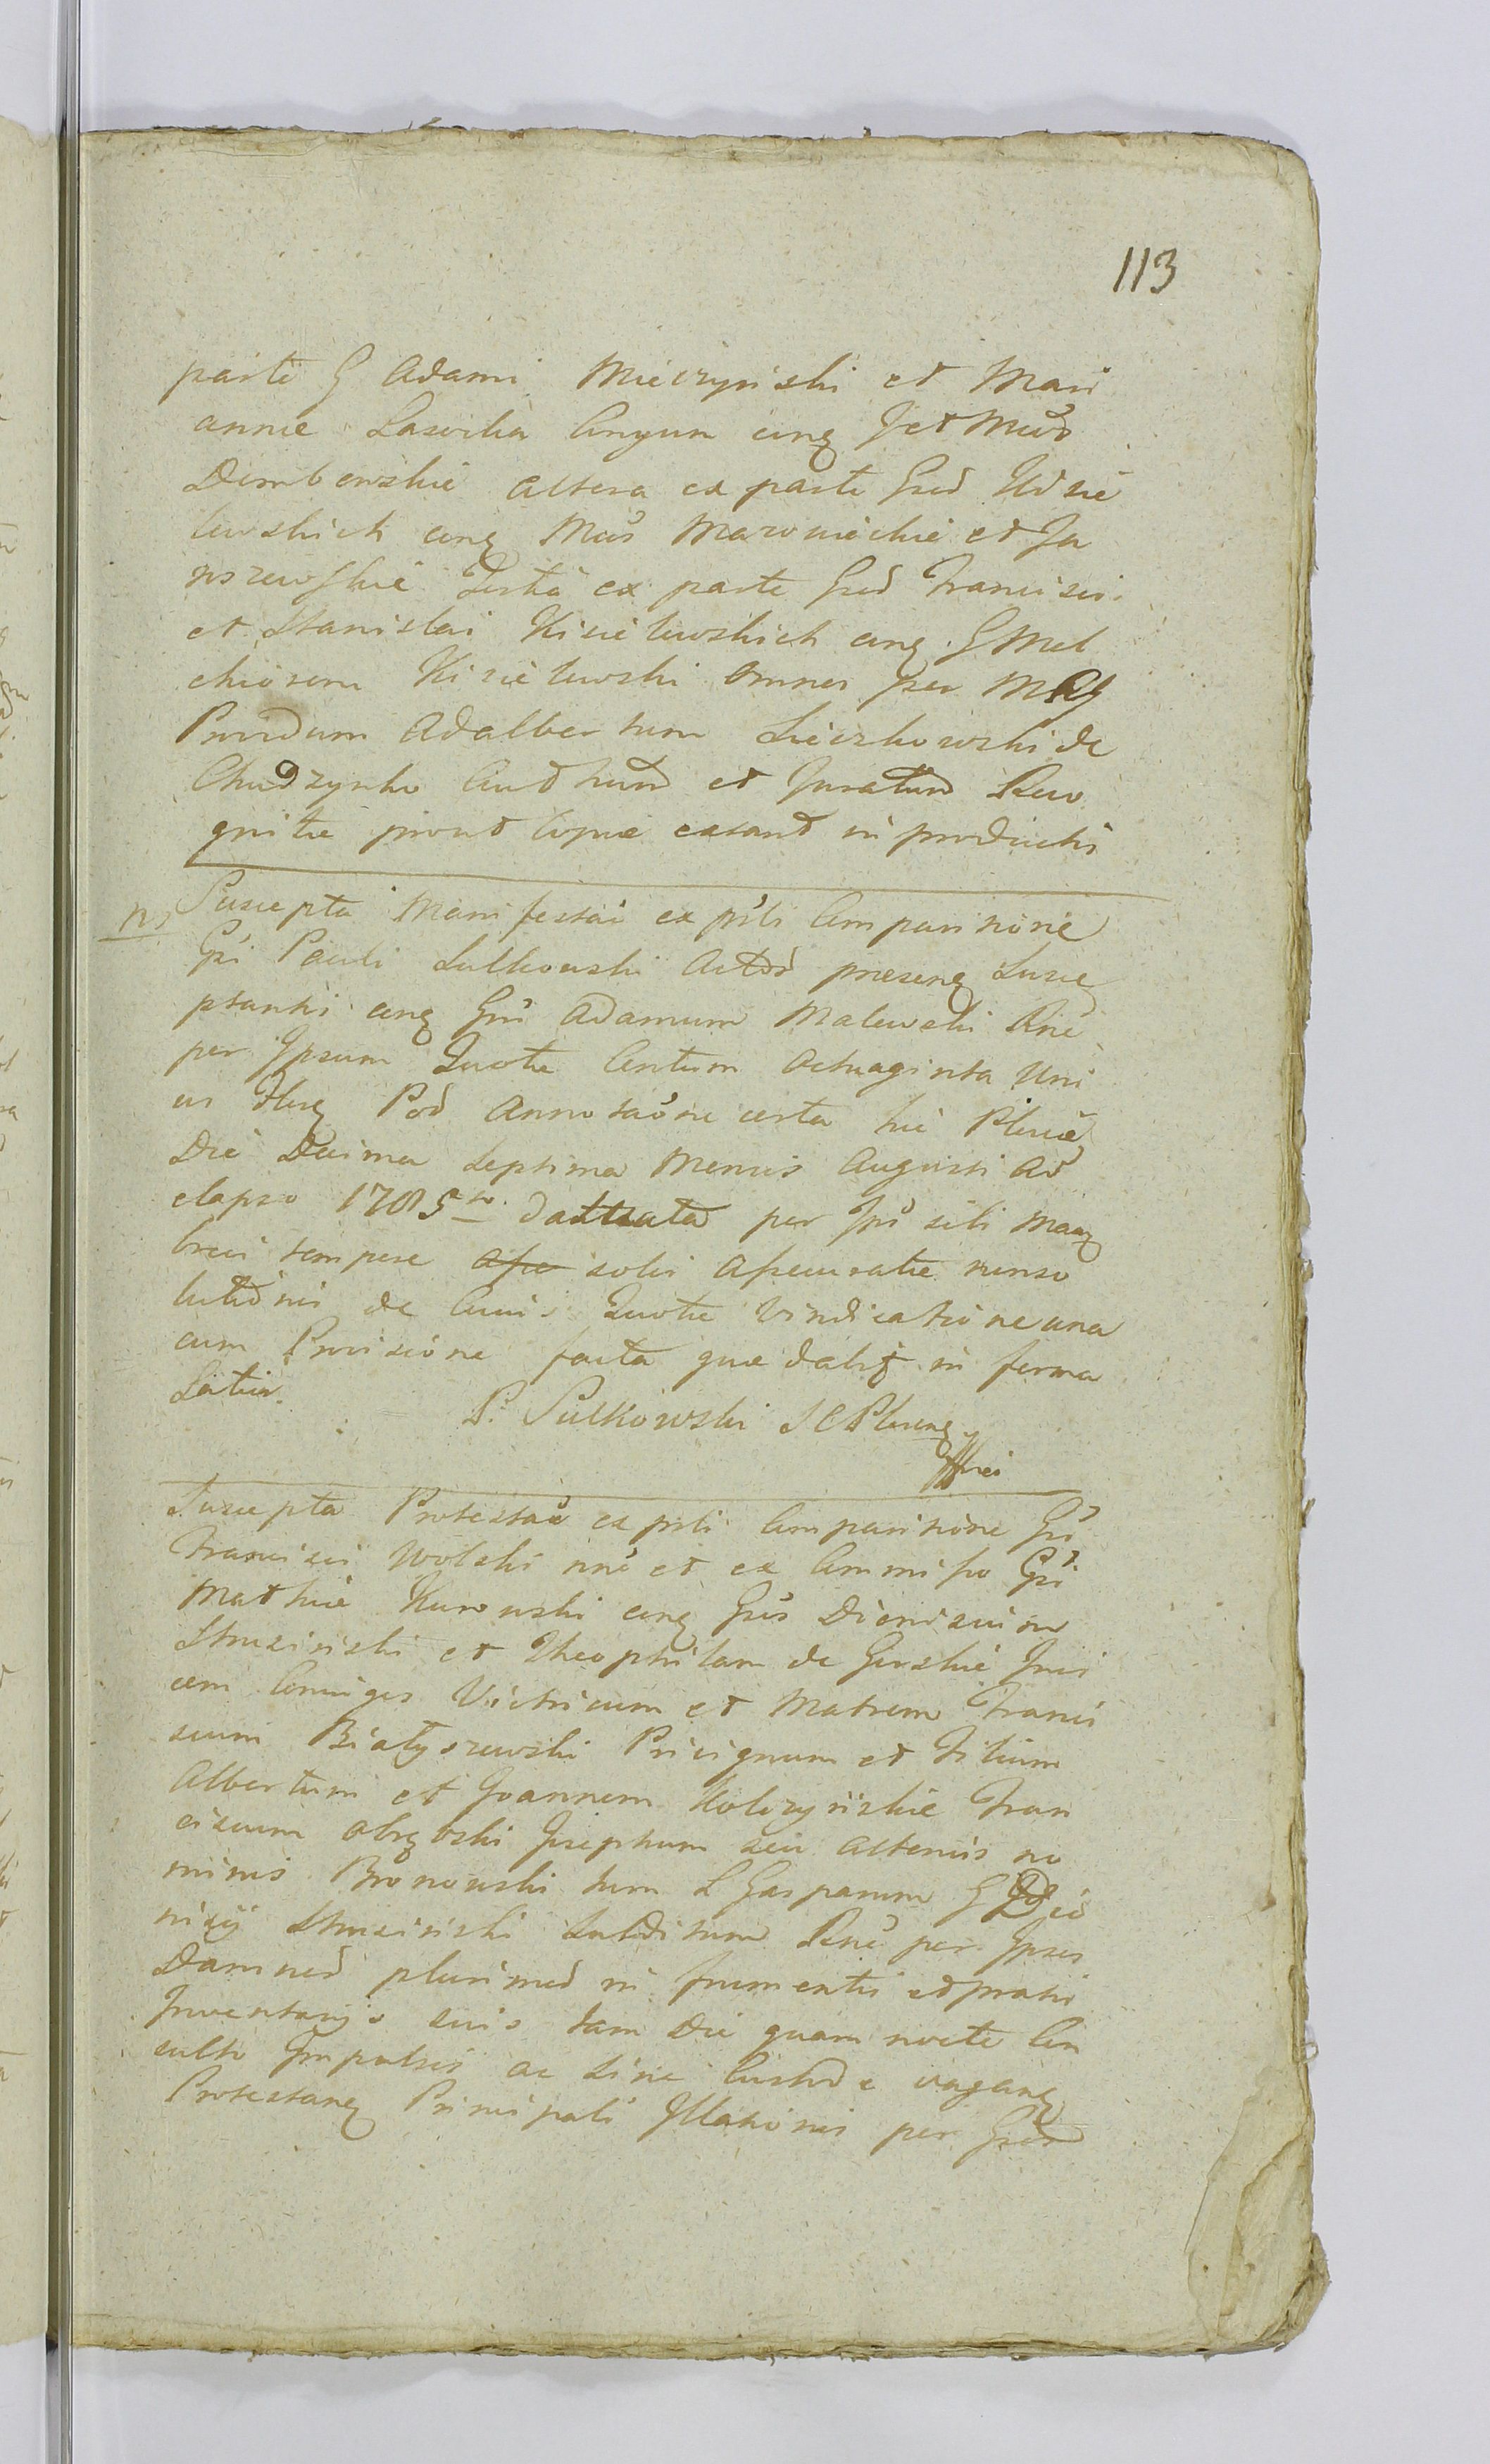 113
parte G Adami Mieczyński et Mari
annæ Lasocka Conjugum cinq Jet Mud
Dembowskie altera ex parte Gred Kisie
lewskich cinq Mús Marownickie et Ja
nszewskie Tertia ex parte Gred Francisci
et Stanislai Kisielewskich cinq G Mel
chiorem Kisielewski omnes per M
Providum Adalbertum Lieczkowski de
Chudzynko et Juratum Reco
gnitæ prout Copiæ extant in productis
Ns
Suscepta Manifestaō ex prsti Comparitione
Gsi Pauli Sulkowski Actor præsenq Susce
ptantis cinq Gm Adamum Malewski Rne
per Ipsum Quotæ Centum Octuaginta Uni
us flreq Pol Annotaōne certa hic Plsciæ
Die Decima Septima Mensis Augusti Ao
elapso 1785to per Ips sibi Manq
brevi tempore solvi Assecuratæ nunso
lutiōnis de Cuius Quotæ Vindicatione una
cum Provisione facta quæ dabitq in forma
Latius.
P. Sulkowski SCPlscenq
Suscepta Protestaō ex prsti Comparitione Gsi
Francisci Wolski nne et ex Commisso Gsi
Mathiæ Kurowski cinq Gsos Dionisium
Struzinski et Theophilam de Gorskie Invi
cem Conjuges Vitricum et Matrem Franci
scum Białyszewski Privignum et Filium
Albertum et Joannem Kolczyńskie Fran
ciscum Obrębski Josephum seu alterius no
minis Bronowski tum L Gasparum G Dio
nisij Struzinski Subditum Rne per Ipsos
Damned plurimed in frumentis et pratis
Inventarijs suis tam Die quam nocte Con
sulto Impulsis ac sine Custode vaganq
Protestanq Principali Illationis per Gsos